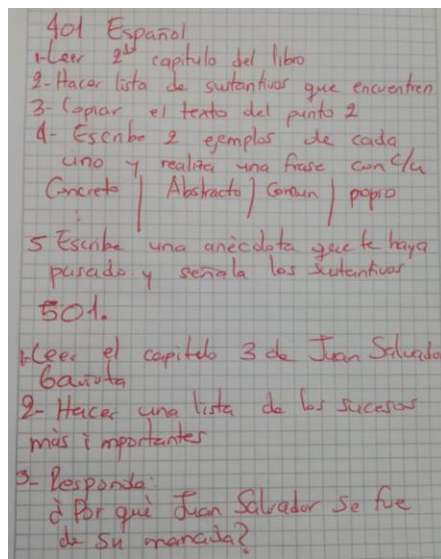 401 Español
1-Leer 2do capitulo del libro
2-Hacer lista de sutantivos que encuentren
3- Copiar el texto del punto 2
4- Escribe 2 ejemplos de cada
uno y realiza una frase con c/u
Concreto | Abstracto | Comun | popio
5 Escribe una anècdota que te haya
pasado y señala los sutantivos
501.
1-Leer el capitulo 3 de Juan Salvador
Gaviota
2- Hacer una lista de los sucesos
màs importantes
3- Responde:
¿Por què Juan Salvador se fue
de su manada?